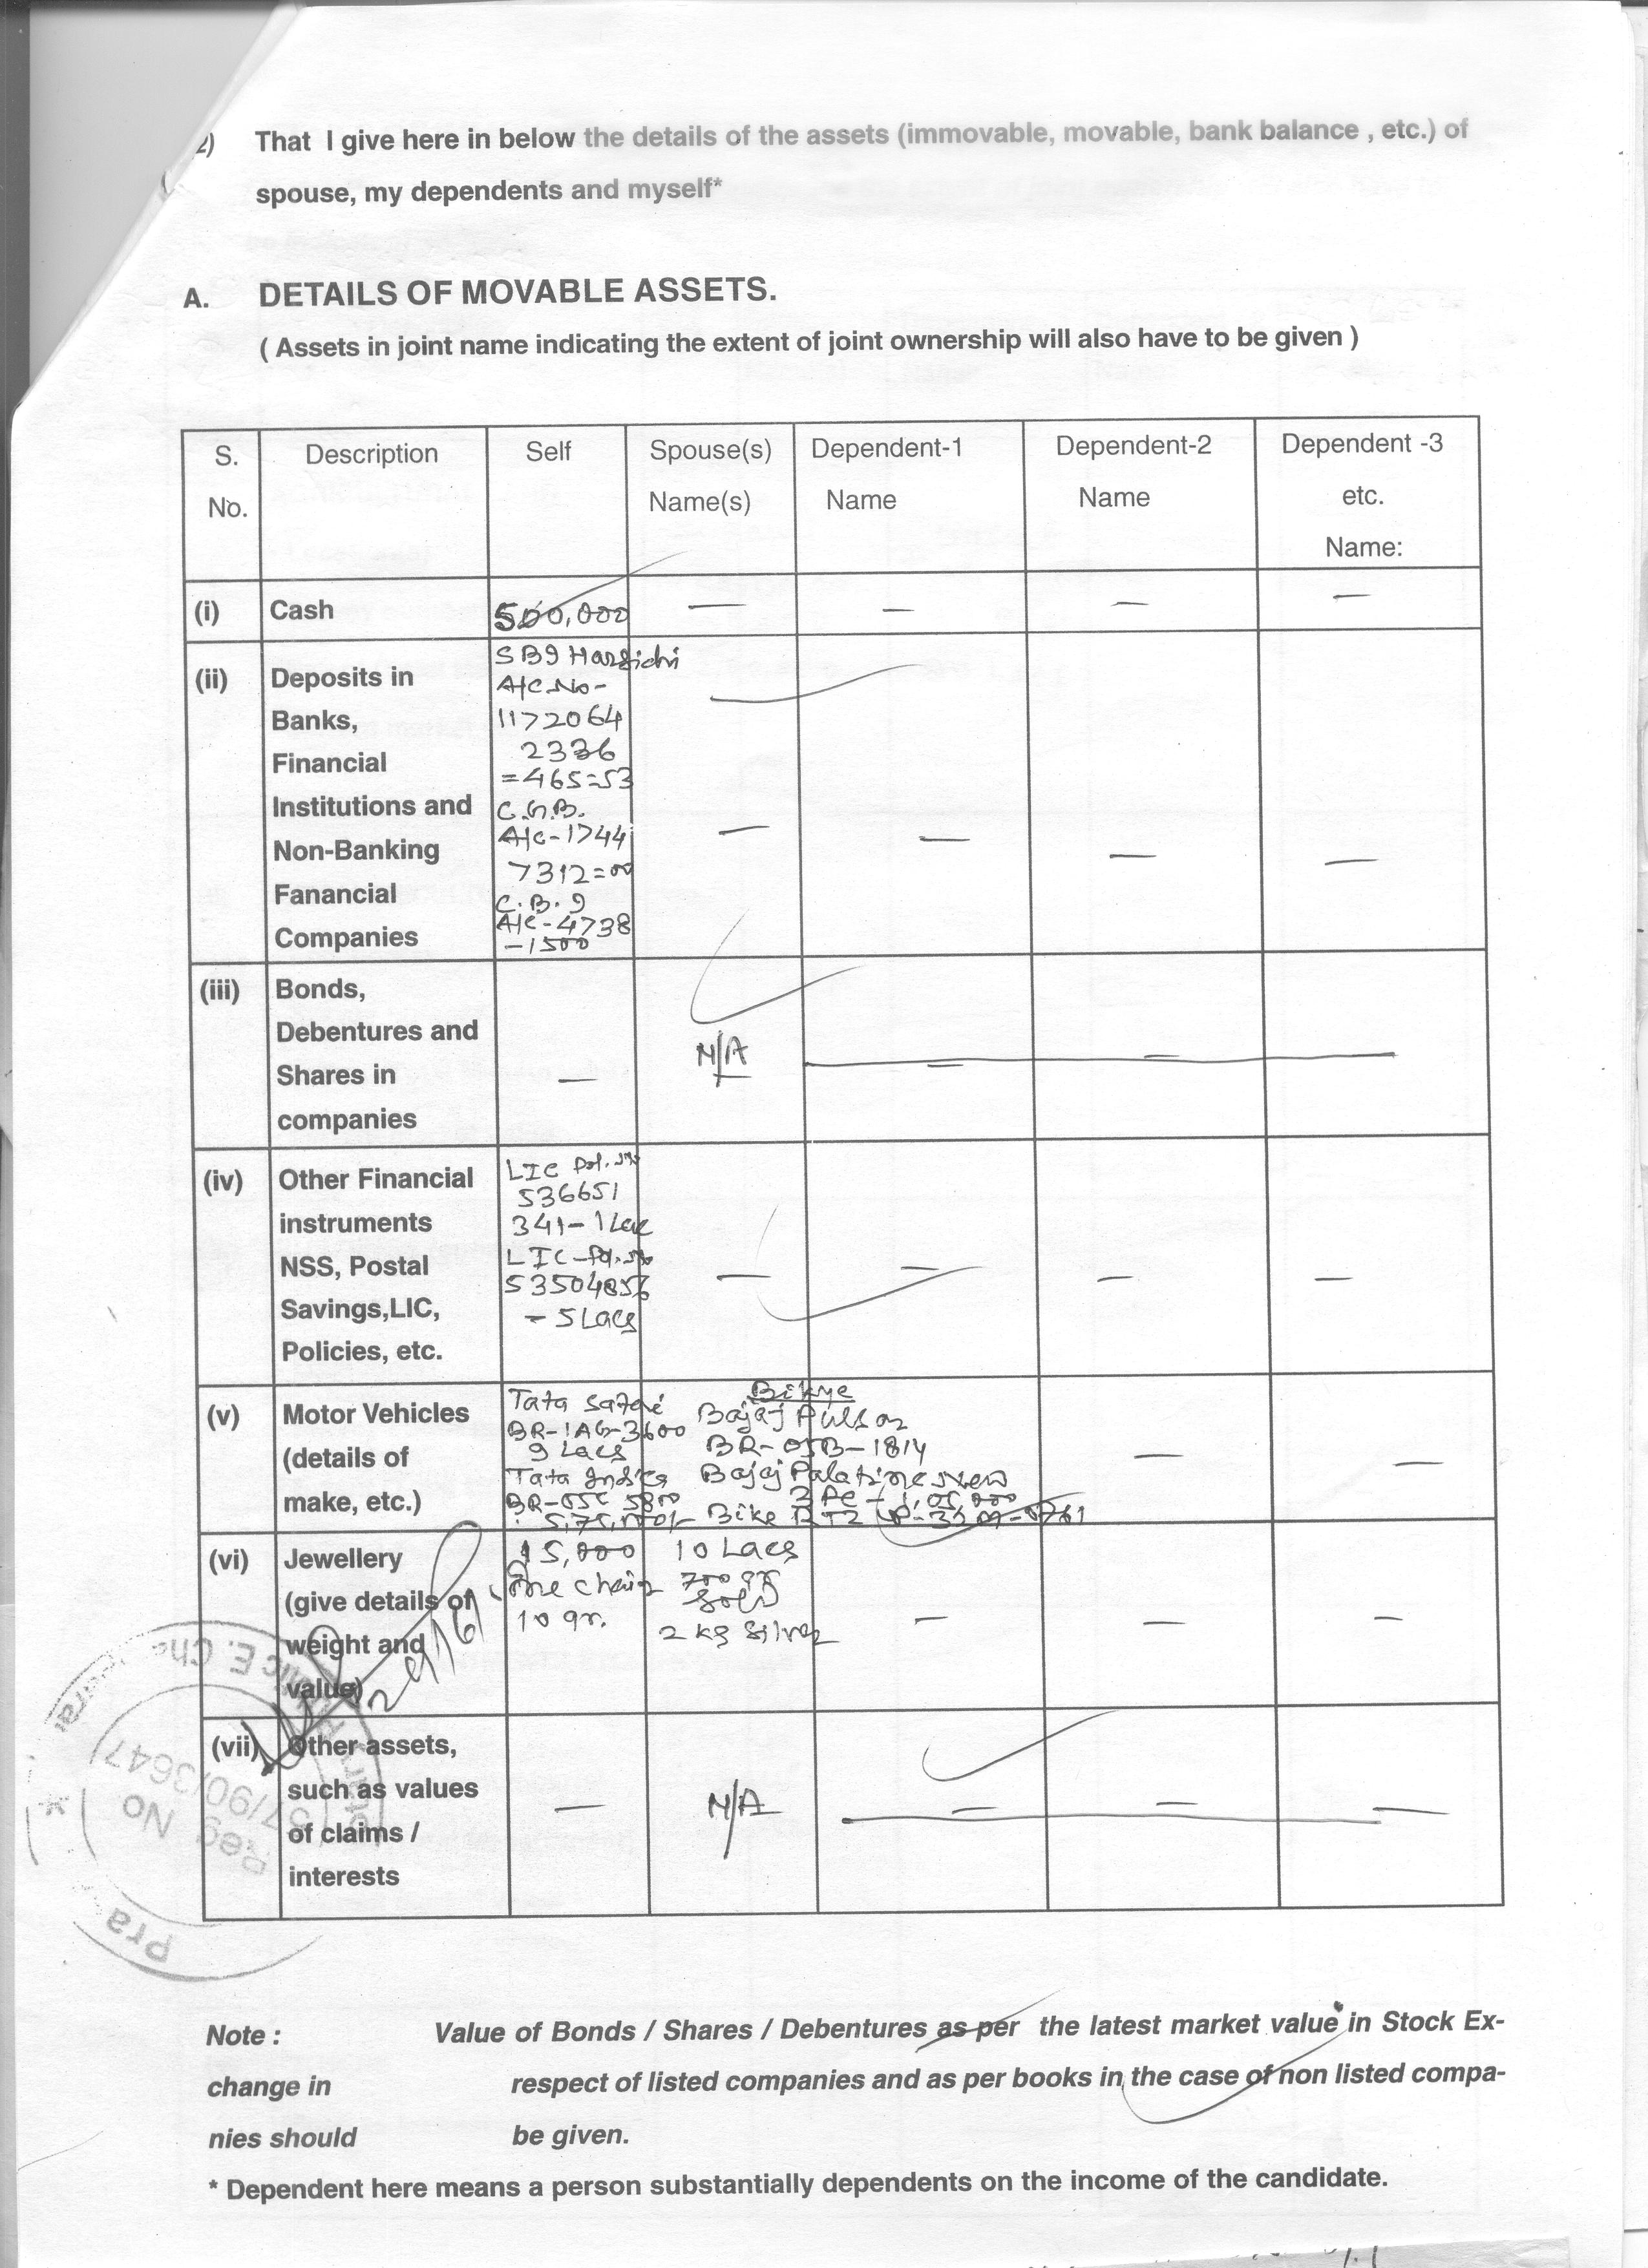 2) That I give here in below the details of the assets (immovable, movable, bank balance , etc.) of
spouse, my dependents and myself*
A. DETAILS OF MOVABLE ASSETS.
( Assets in joint name indicating the extent of joint ownership will also have to be given )
S. No. Description Self Spouse(s) Name(s) Dependent-1 Name Dependent-2 Name Dependent -3 etc. Name:
(i) Cash 500,000 — — — —
(ii) Deposits in
Banks,
Financial
Institutions and
Non-Banking
Fanancial
Companies
SBI
A/C No-
1172064
2336
=465=53
C.G.B.
A/C-1744
7312=00
C.B.I
A/C-4738
-1500
— — — —
(iii) Bonds,
Debentures and
Shares in
companies
— N/A — — —
(iv) Other Financial
instruments
NSS, Postal
Savings,LIC,
Policies, etc.
LIC Pol. No
536651
341-1 Lac
LIC-Pol. No
53504856
- 5 Lacs
— — — —
(v) Motor Vehicles
(details of
make, etc.)
Tata Safari
BR-1AG-3600
9 Lacs
Tata Indica
BR-05C 5800
5,75,000/-
Bikye
Bajaj Pulsar
BR-05B-1814
Bajaj Palatine New
2 PC - 1,05,000
Bike
— —
(vi) Jewellery
(give details of
weight and
value)
15,000
One chain
10 gr.
10 Lacs
700 gr
Gold
2 kg Silver
— — —
(vii) Other assets,
such as values
of claims /
interests
— N/A — — —
Reg No
37/90/3647
Pra
Note : Value of Bonds / Shares / Debentures as per the latest market value in Stock Ex-
change in respect of listed companies and as per books in the case of non listed compa-
nies should be given.
* Dependent here means a person substantially dependents on the income of the candidate.